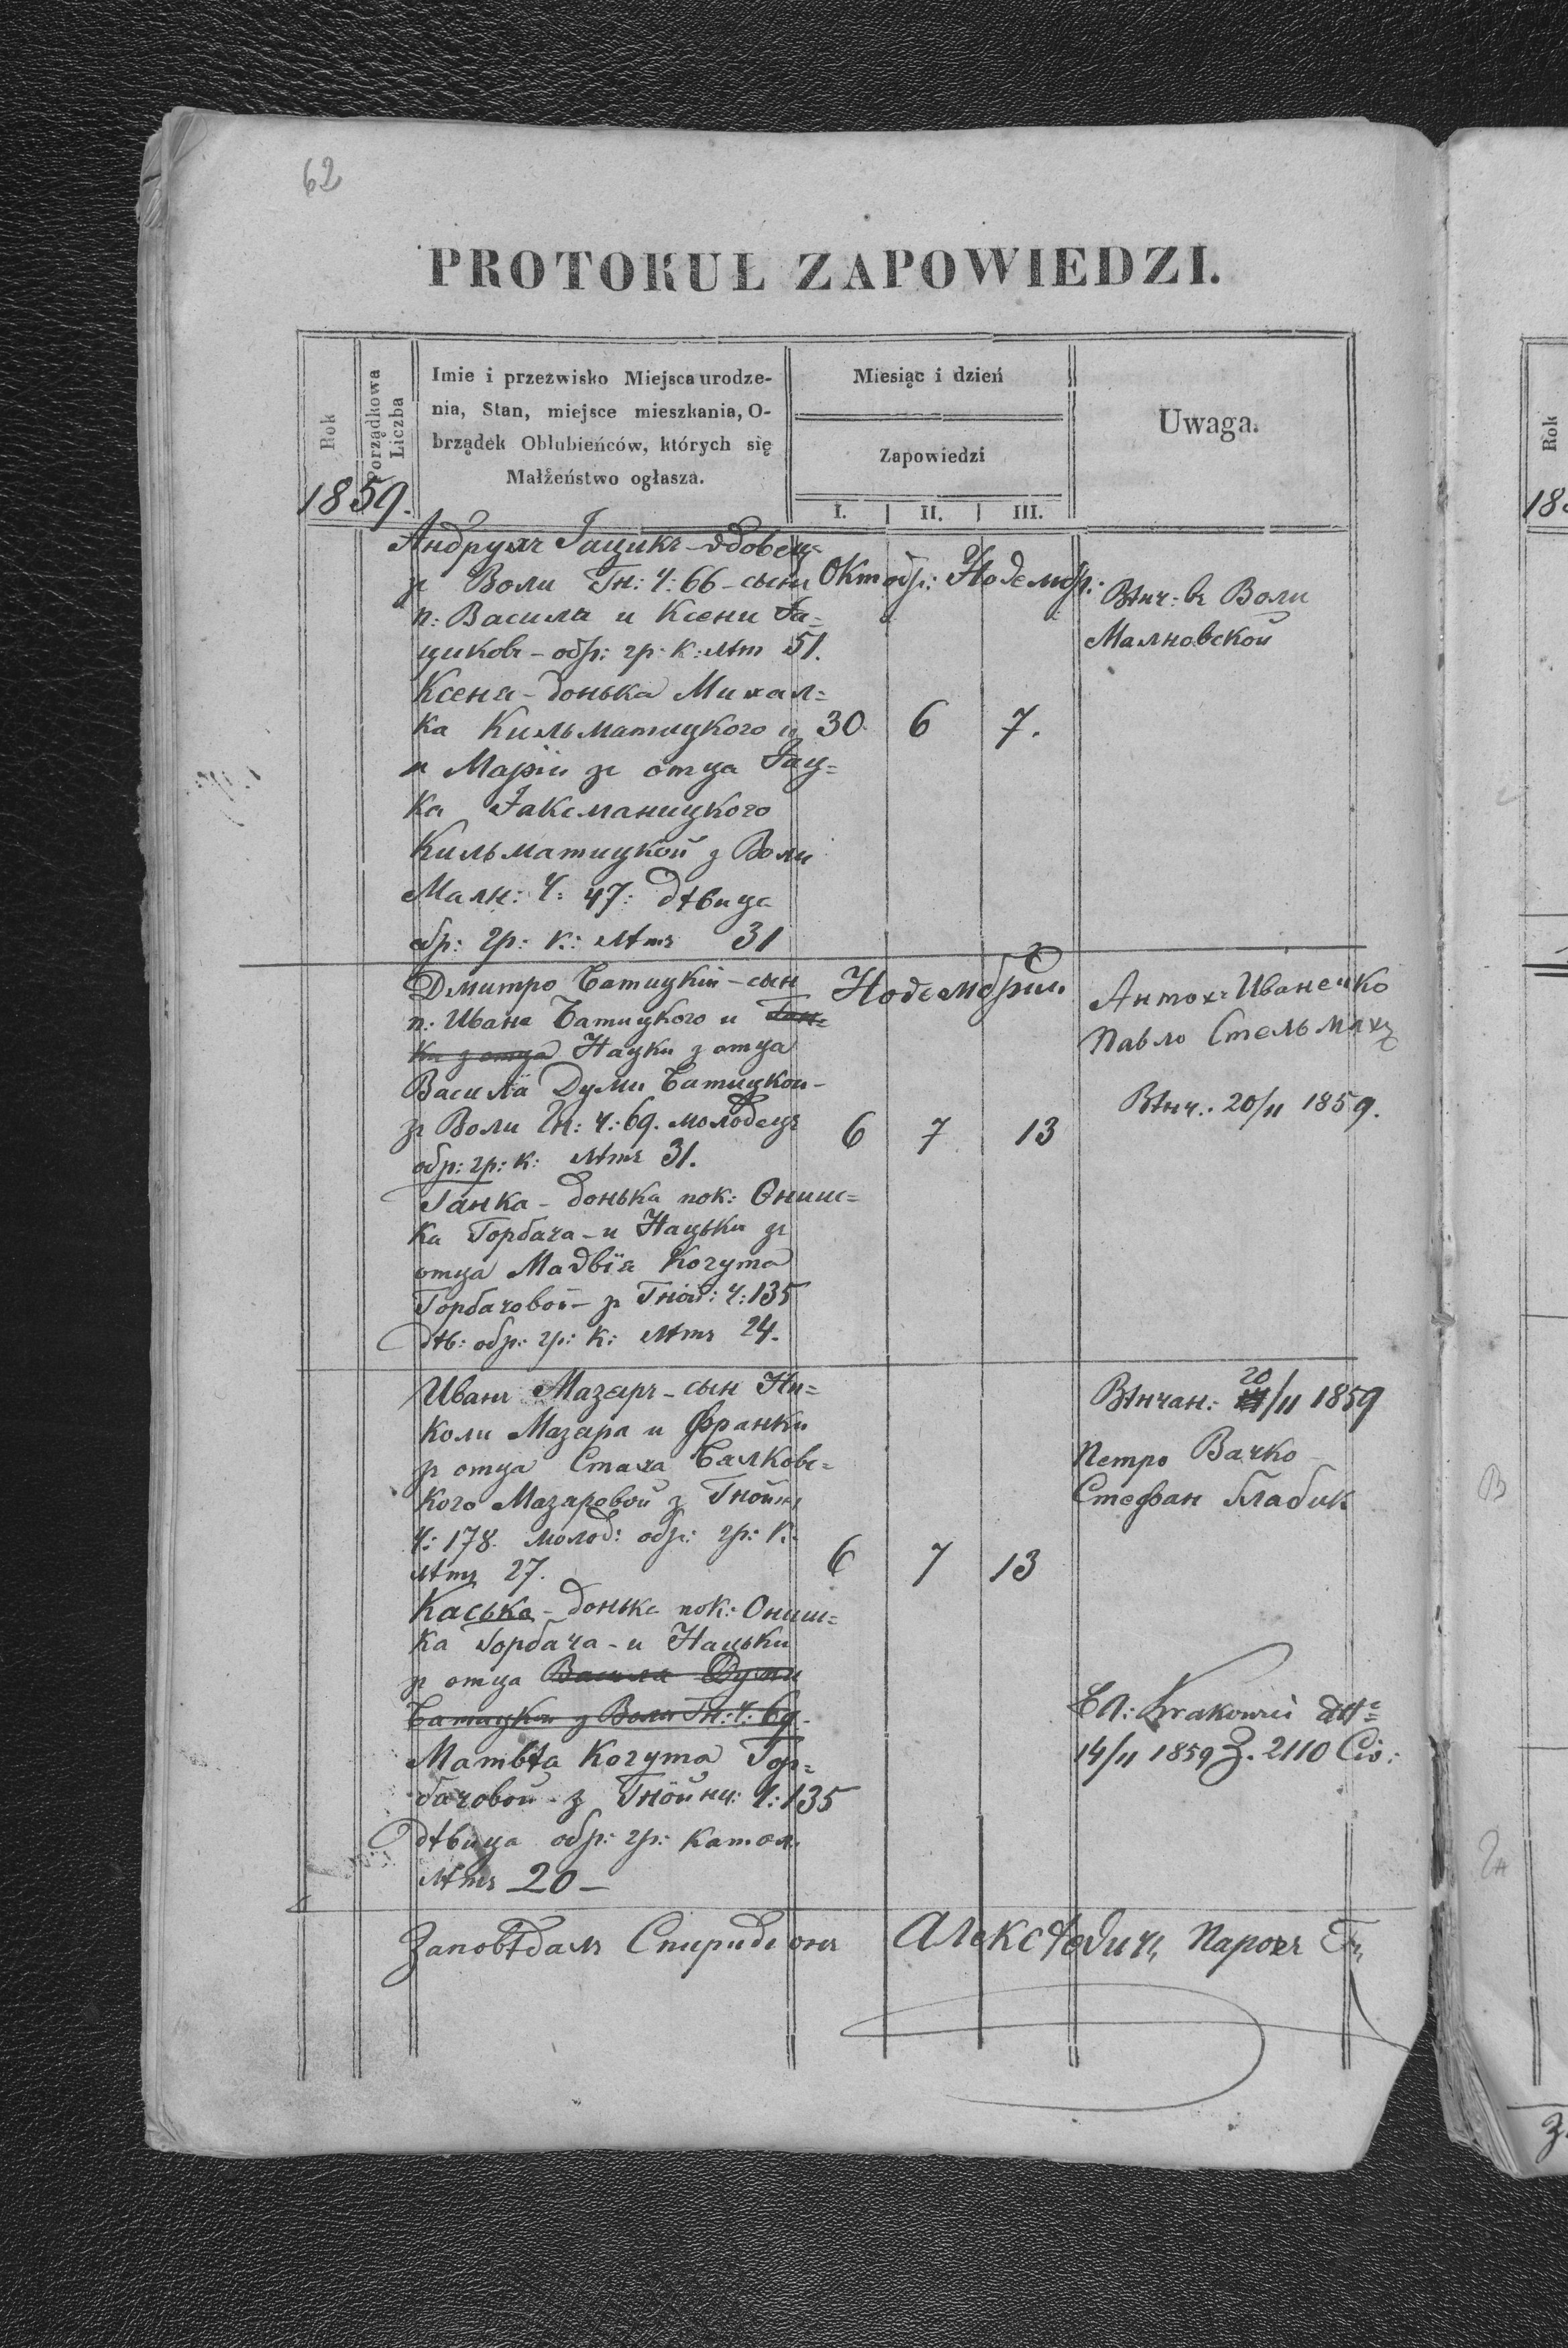 62
PROTOKUŁ ZAPOWIEDZI.
Rok
Porządkowa Liczba
Imie i przezwisko Miejsca urodze-
nia, Stan, miejsce mieszkania, O-
brządek Oblubieńców, których się
Małżeństwo ogłasza.
Miesiąc i dzień
Zapowiedzi
I. II. III.
Uwaga.
1859.
Андрухъ Яцикъ - вдовець
зъ Воли Гн: Ч: 66 - сынъ
п: Василя и Ксени Яц=
циковъ - обр: гр: к: лѣт 51.
Ксеня - донька Михал=
ка Кильматицкого и
и Маріи зъ отца Яц=
ка Яксманицкого
Кильматицкой з Воли
Малн: Ч: 47: дѣвица
обр: гр: к: лѣтъ 31
Октобр: Новембр:
30 6 7.
Вѣнч: въ Воли
Малновской
Дмитро Батицкій - сын
п: Ивана Батицкого и Ган=
ки з отца Нацки з отца
Василя Думи Батицкои -
зъ Воли Гн: ч: 69. молодецъ
обр: гр: к: лѣтъ 31.
Ганка - донька пок: Ониш=
ка Горбача - и Нацьки зъ
отца Мадвія Когута
Горбачовой - зъ Гной: ч: 135
дѣв: обр: гр: к: лѣтъ 24.
Новембрій
6 7 13
Антох Иванечко
Павло Стельмахъ
Вѣнч.: 20/11 1859.
Иванъ Мазаръ - сын Ни=
коли Мазара и Франки
зъ отца Стаха Балковс=
кого Мазаровой з Гнойн:
ч: 178. молод: обр: гр: к:
лѣтъ 27.
Каська - донька пок: Ониш=
ка Горбача - и Нацьки
зъ отца Василя Думи
Батицкои з Воли Гн: ч: 69.
Матвѣа Когута Гор=
бачовой - з Гнойни: Ч: 135
дѣвица обр: гр: катол.
лѣтъ 20 -
6 7 13
Вѣнчан: 20/11 1859
Петро Вачко
Стефан Глабик
Krakowiec
14/11 1859 Z. 2110 Civ:
Заповѣдалъ Спиридіонъ Алексѣевичъ Парохъ Гн